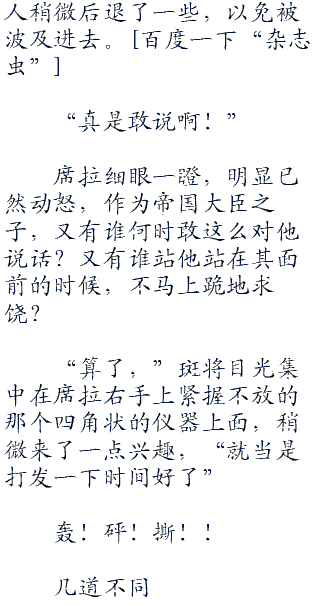 人稍微后退了一些，以免被
波及进去。[百度一下“杂志
虫”]
“真是敢说啊！”
席拉细眼一瞪，明显已
然动怒，作为帝国大臣之
子，又有谁何时敢这么对他
说话？又有谁站他站在其面
前的时候，不马上跪地求
饶？
“算了，”斑将目光集
中在席拉右手上紧握不放的
那个四角状的仪器上面，稍
微来了一点兴趣，“就当是
打发一下时间好了”
轰！砰！撕！！
几道不同